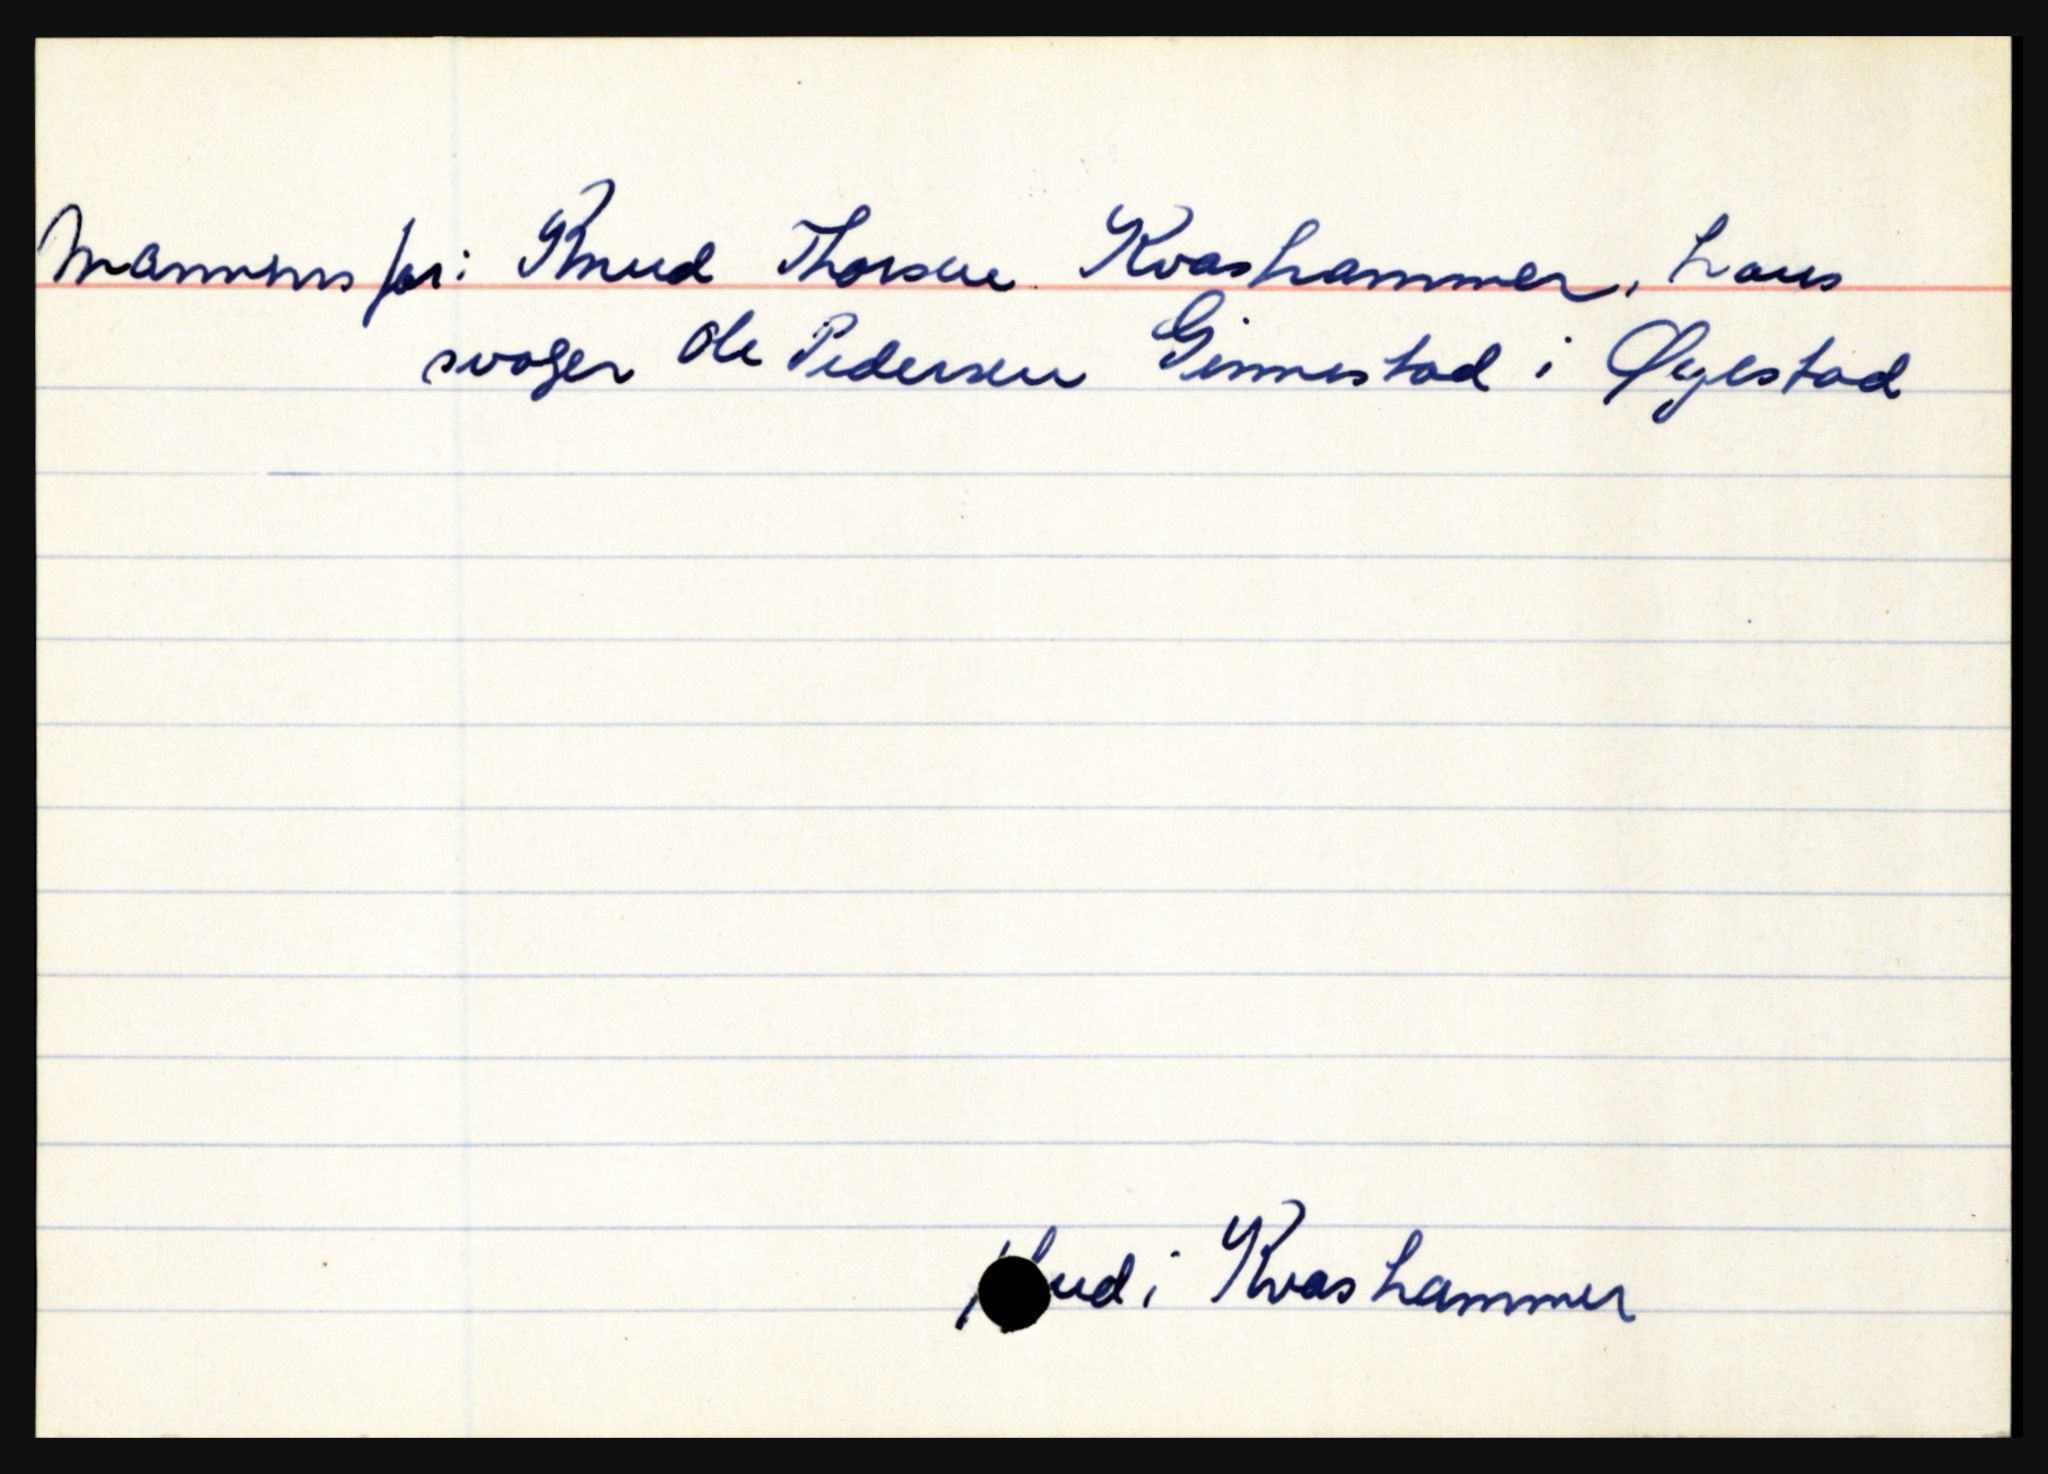 Mannens far: Knud Thorsen Kvashammer, hans
svoger Ole Pedersen Ginnestad i Øyestad
Kvashammer